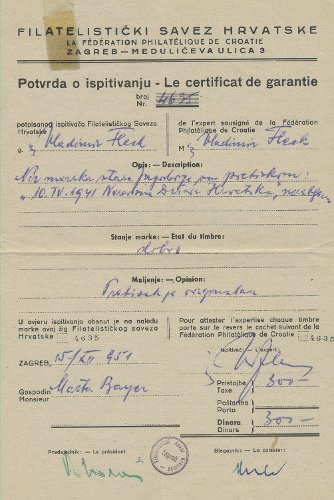 FILATELISTIČKI SAVEZ HRVATSKE
LA FÉDÉRATION PHILATÉLIQUE DE CROATIE
ZAGREB – MEDULIĆEVA ULICA 3
Potvrda o ispitivanju - Le certificat de garantie
broj
Nr.
potpisanog ispitivača Filatelističkog Saveza
Hrvatske
de l'expert sousigné de la Fédération
Philatélique de Croatie
g. Vladimir Fleck
M Vladimir Fleck
Opis: – Description:
"10. IV. 1941
Stanje marke: – État du timbre:
dobro
Mišljenje: – Opinion:
Pretisak je originalan
U ovjeru ispitivanja otisnut je na naleđu
marke ovaj žig Filatelističkog saveza
Hrvatske 4635
Pour attester l'expertise chaque timbre
porte sur le revers le cachet suivant de la
Fédération Philatélique de Croatie
4635
ZAGREB, 15/XII 951
Gospodin
Monsieur
Marta Bayer
Pristojba
Taxe
300-
Poštarina
Porto
Dinara
Dinars
300-
Predsjednik: – Le président
Blagajnik: – Le caissier: